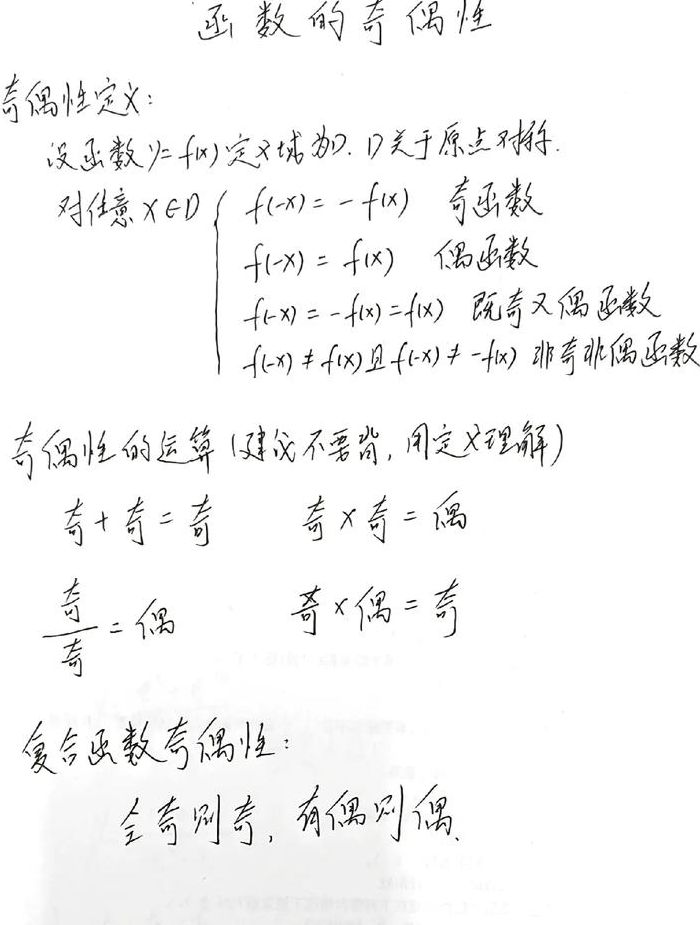 函数的奇偶性
奇偶性定义:
设函数y=f(x)定义域为D. D关于原点对称.
对任意x∈D { f(-x)=-f(x) 奇函数
f(-x)=f(x) 偶函数
f(-x)=-f(x)=f(x) 既奇又偶函数
f(-x)≠f(x)且f(-x)≠-f(x) 非奇非偶函数
奇偶性的运算(建议不要背,用定义理解)
奇+奇=奇 奇×奇=偶
奇/奇=偶 奇×偶=奇
复合函数奇偶性:
全奇则奇,有偶则偶.